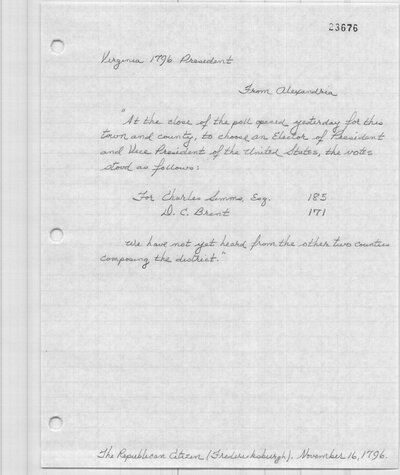 23676
Virginia 1796 President
From Alexandria
"At the close of the poll opened yesterday for this
town and county, to choose an Elector of President
and Vice President of the United States, the votes
stood as follows:
For Charles Simms, Esq. 185
D. C. Brent 171
We have not yet heard from the other two counties
composing the district."
The Republican Citizen (Fredericksburgh). November 16, 1796.